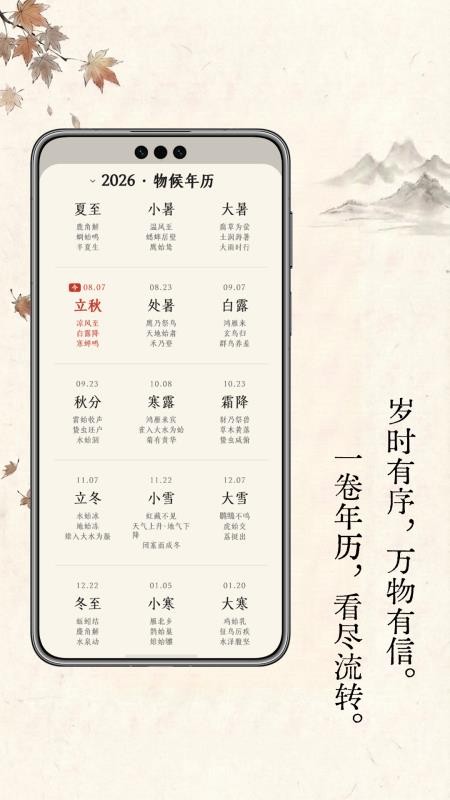 2026 · 物候年历
夏至
鹿角解
蜩始鸣
半夏生
小暑
温风至
蟋蟀居壁
鹰始鸷
大暑
腐草为萤
土润溽暑
大雨时行
今 08.07
立秋
凉风至
白露降
寒蝉鸣
08.23
处暑
鹰乃祭鸟
天地始肃
禾乃登
09.07
白露
鸿雁来
玄鸟归
群鸟养羞
09.23
秋分
雷始收声
蛰虫坯户
水始涸
10.08
寒露
鸿雁来宾
雀入大水为蛤
菊有黄华
10.23
霜降
豺乃祭兽
草木黄落
蛰虫咸俯
11.07
立冬
水始冰
地始冻
雉入大水为蜃
11.22
小雪
虹藏不见
天气上升·地气下
降
闭塞而成冬
12.07
大雪
鹖鴠不鸣
虎始交
荔挺出
12.22
冬至
蚯蚓结
麋角解
水泉动
01.05
小寒
雁北乡
鹊始巢
雉始雊
01.20
大寒
鸡始乳
征鸟厉疾
水泽腹坚
岁时有序，万物有信。
一卷年历，看尽流转。